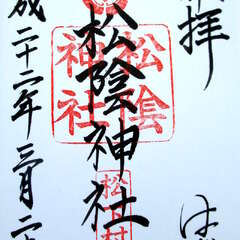 拝
松陰神社
松陰
神社
松下村
成二十二年三月二